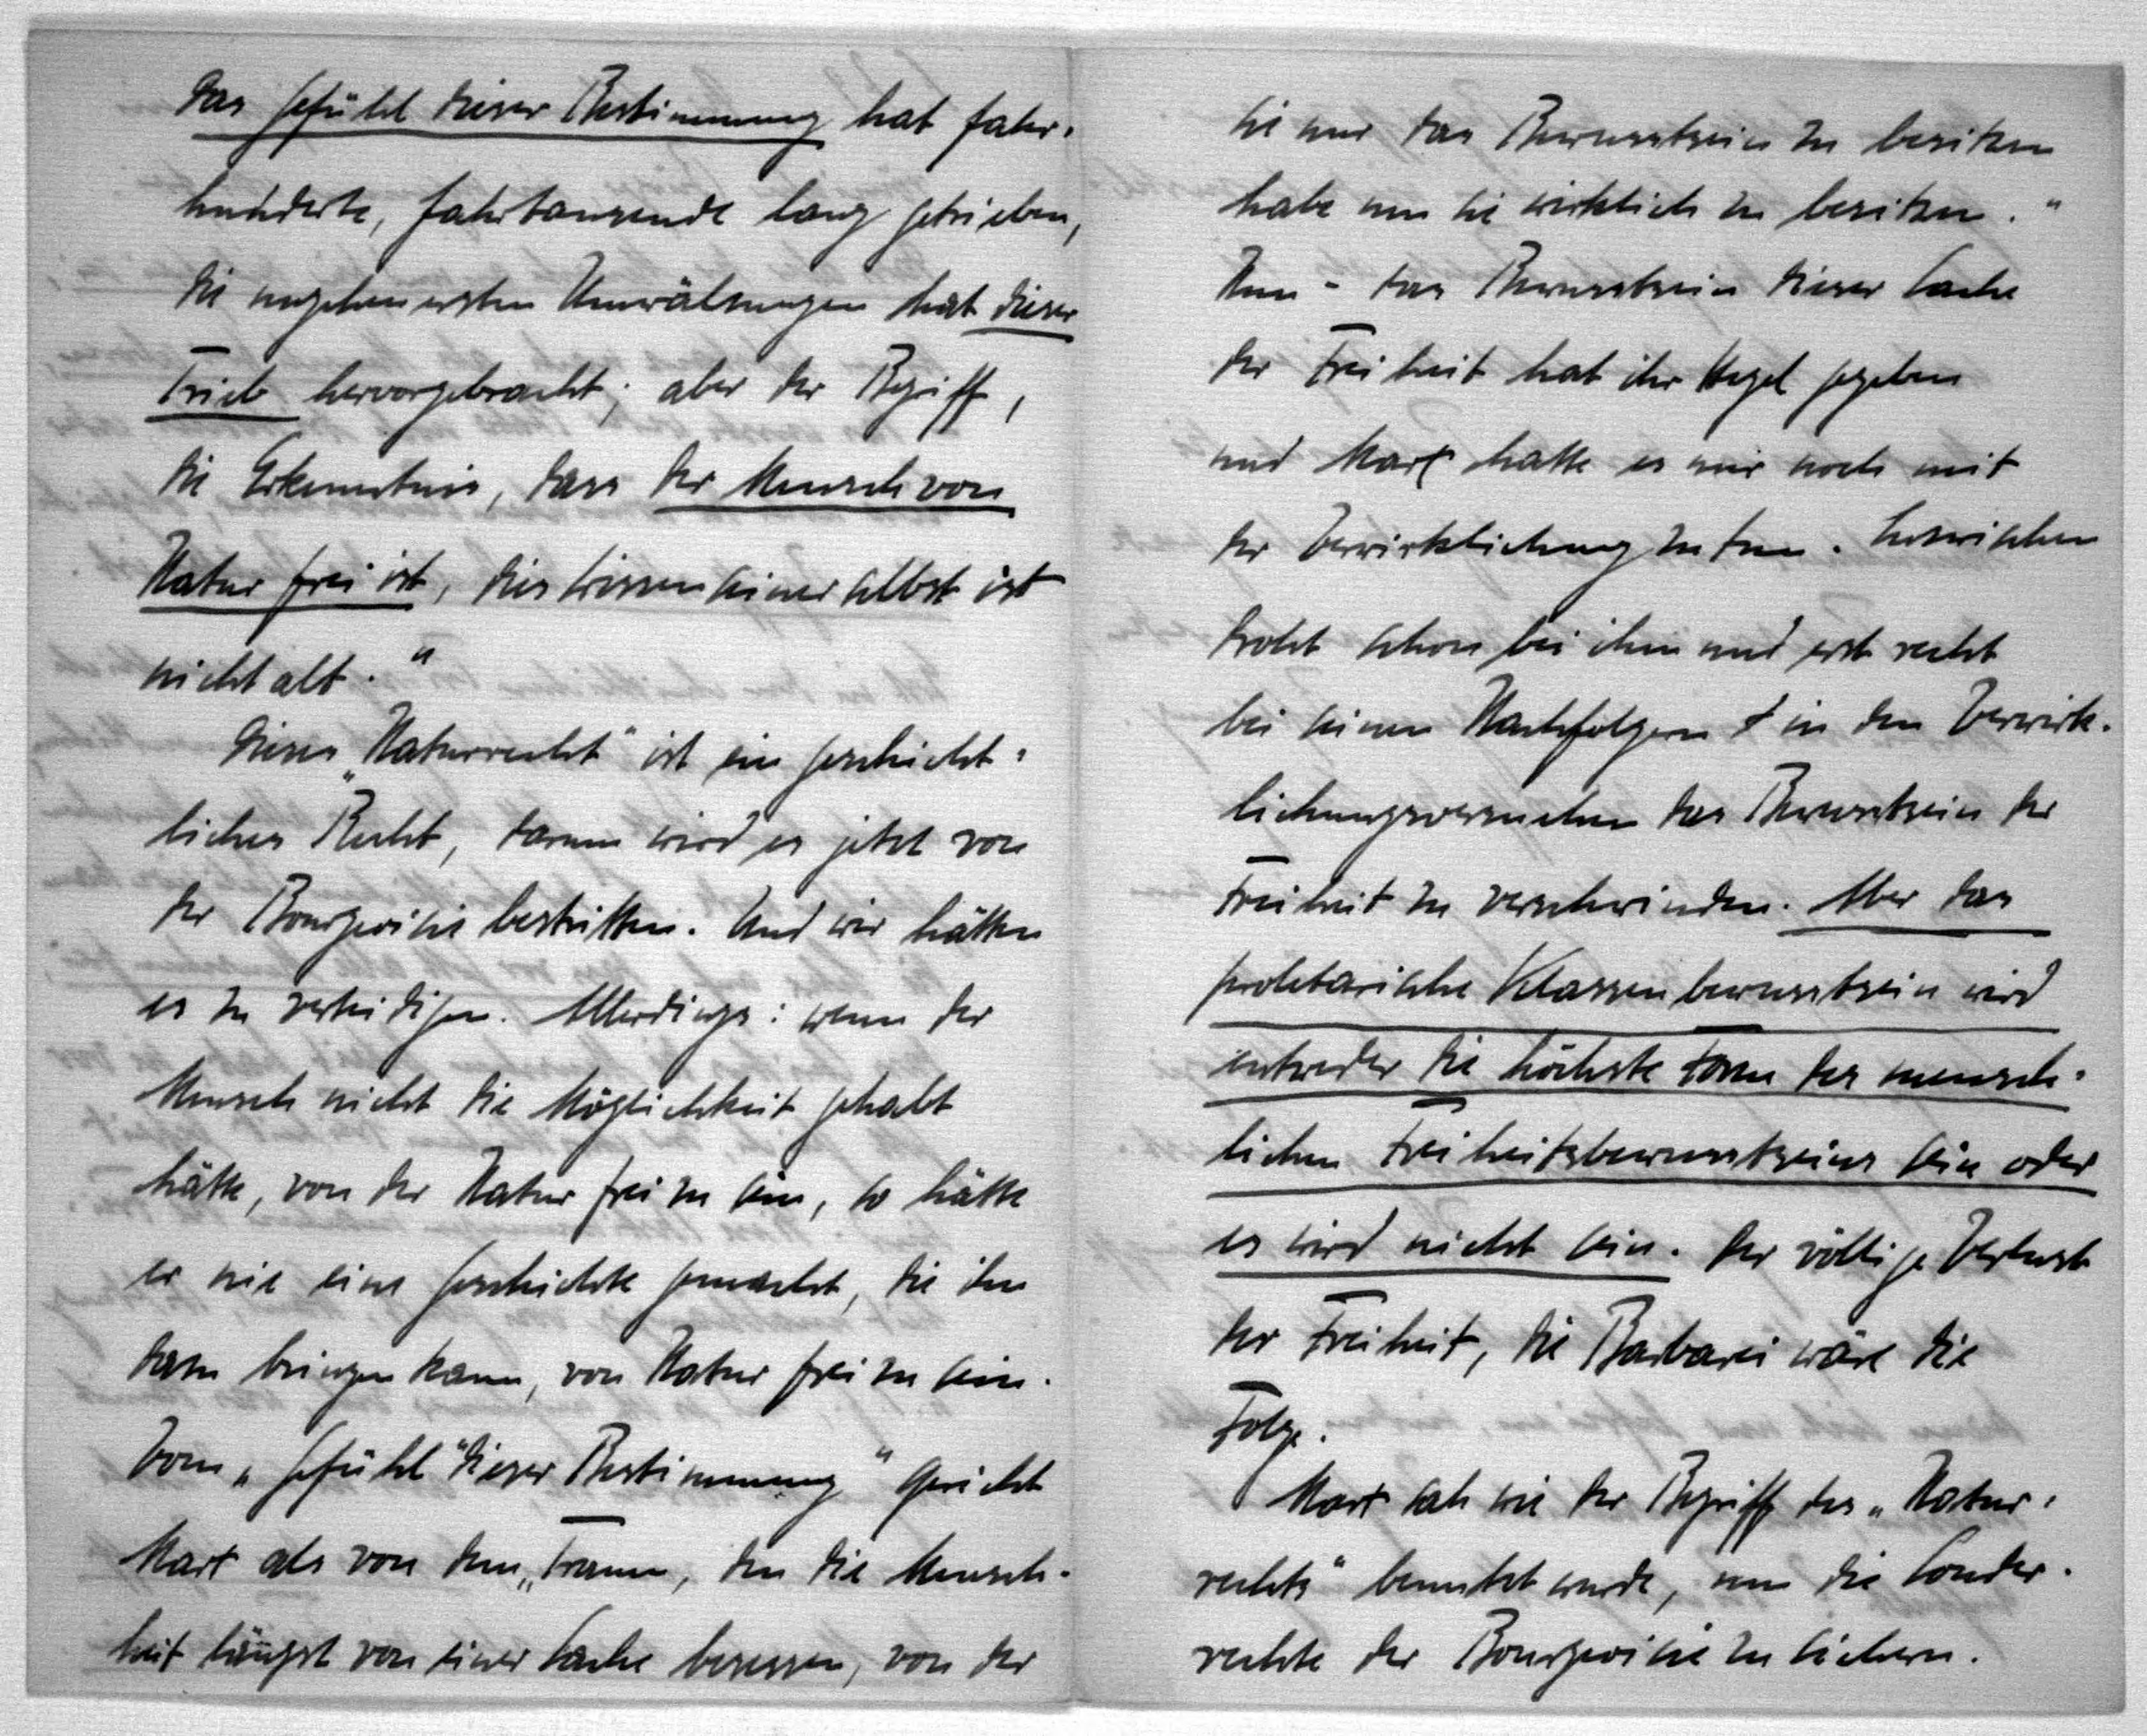 Das Gefühl dieser Bestimmung hat Jahr-
hunderte, Jahrtausende lang getrieben,
die ungeheuersten Umwälzungen hat dieser
Trieb hervorgebracht; aber der Begriff,
die Erkenntnis, dass der Mensch von
Natur frei ist, dies Wissen seiner selbst ist
nicht alt."
Dieses „Naturrecht" ist ein geschicht-
liches Recht, darum wird es jetzt von
der Bourgeoisie bestritten. Und wir hätten
es zu verteidigen. Allerdings: wenn der
Mensch nicht die Möglichkeit gehabt
hätte, von der Natur frei zu sein, so hätte
er nie eine Geschichte gemacht, die ihn
dazu bringen kann, von Natur frei zu sein.
Vom „Gefühl" dieser Bestimmung" spricht
Marx als von dem „Traum, den die Mensch-
heit längst von einer Sache besessen, von der
sie nur das Bewusstsein zu besitzen
habe um sie wirklich zu besitzen."
Nun - das Bewusstsein dieser Sache
der Freiheit hat ihr Hegel gegeben
und Marx hatte es nur noch mit
der Verwirklichung zu tun. Inzwischen
droht schon bei ihm und erst recht
bei seinen Nachfolgern & in den Verwirk-
lichungsversuchen das Bewusstsein der
Freiheit zu verschwinden. Aber das
proletarische Klassenbewusstsein wird
entweder die höchste Form des mensch-
lichen Freiheitsbewusstseins sein oder
es wird nicht sein. Der völlige Verlust
der Freiheit, die Barbarei wäre die
Folge.
Marx sah wie der Begriff des „Natur-
rechts" benutzt wurde, um die Sonder-
rechte der Bourgeoisie zu sichern.